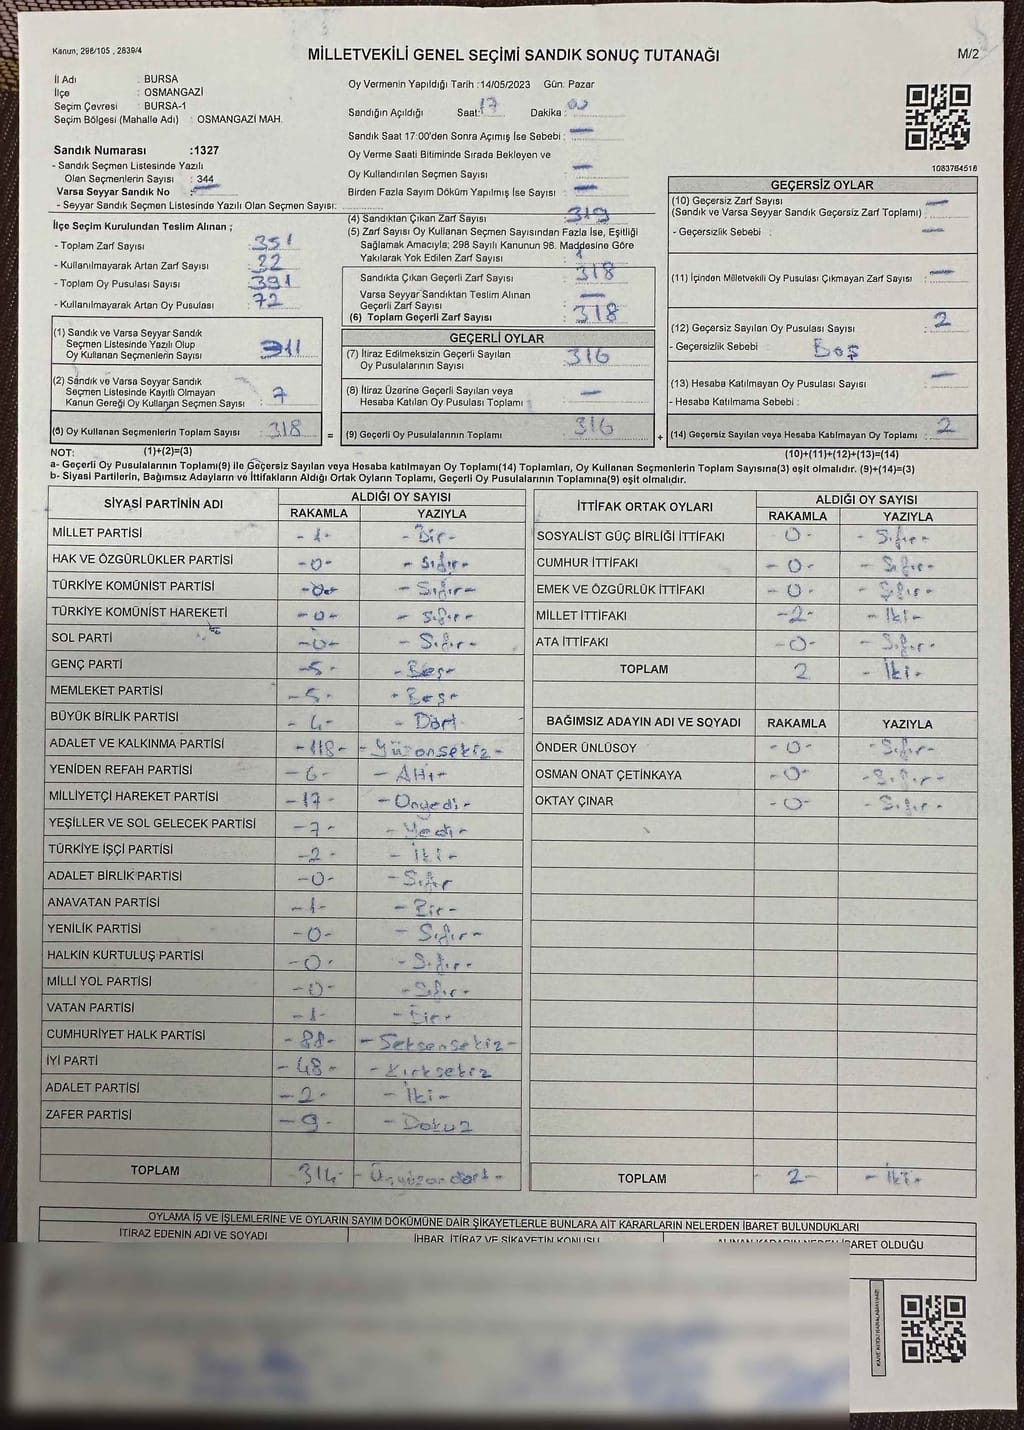 Kanun; 298/105 , 2839/4
MİLLETVEKİLİ GENEL SEÇİMİ SANDIK SONUÇ TUTANAĞI
M/2
İl Adı : BURSA
İlçe : OSMANGAZİ
Seçim Çevresi : BURSA-1
Seçim Bölgesi (Mahalle Adı) : OSMANGAZİ MAH.
Sandık Numarası :1327
- Sandık Seçmen Listesinde Yazılı
Olan Seçmenlerin Sayısı : 344
Varsa Seyyar Sandık No : —
- Seyyar Sandık Seçmen Listesinde Yazılı Olan Seçmen Sayısı:
Oy Vermenin Yapıldığı Tarih :14/05/2023 Gün: Pazar
Sandığın Açıldığı Saat: 17 Dakika : 00
Sandık Saat 17:00'den Sonra Açımış İse Sebebi : —
Oy Verme Saati Bitiminde Sırada Bekleyen ve
Oy Kullandırılan Seçmen Sayısı : —
Birden Fazla Sayım Döküm Yapılmış İse Sayısı : —
1083784518
İlçe Seçim Kurulundan Teslim Alınan ;
- Toplam Zarf Sayısı : 351
- Kullanılmayarak Artan Zarf Sayısı : 32
- Toplam Oy Pusulası Sayısı : 391
- Kullanılmayarak Artan Oy Pusulası : 72
(1) Sandık ve Varsa Seyyar Sandık
Seçmen Listesinde Yazılı Olup
Oy Kullanan Seçmenlerin Sayısı : 311
(2) Sandık ve Varsa Seyyar Sandık
Seçmen Listesinde Kayıtlı Olmayan
Kanun Gereği Oy Kullanan Seçmen Sayısı : 7
(3) Oy Kullanan Seçmenlerin Toplam Sayısı : 318
(4) Sandıktan Çıkan Zarf Sayısı : 319
(5) Zarf Sayısı Oy Kullanan Seçmen Sayısından Fazla İse, Eşitliği
Sağlamak Amacıyla; 298 Sayılı Kanunun 98. Maddesine Göre
Yakılarak Yok Edilen Zarf Sayısı : 1
Sandıkta Çıkan Geçerli Zarf Sayısı : 318
Varsa Seyyar Sandıktan Teslim Alınan
Geçerli Zarf Sayısı : —
(6) Toplam Geçerli Zarf Sayısı : 318
GEÇERLİ OYLAR
(7) İtiraz Edilmeksizin Geçerli Sayılan
Oy Pusulalarının Sayısı : 316
(8) İtiraz Üzerine Geçerli Sayılan veya
Hesaba Katılan Oy Pusulası Toplamı : —
= (9) Geçerli Oy Pusulalarının Toplamı : 316
GEÇERSİZ OYLAR
(10) Geçersiz Zarf Sayısı
(Sandık ve Varsa Seyyar Sandık Geçersiz Zarf Toplamı) : —
- Geçersizlik Sebebi : —
(11) İçinden Milletvekili Oy Pusulası Çıkmayan Zarf Sayısı : —
(12) Geçersiz Sayılan Oy Pusulası Sayısı : 2
- Geçersizlik Sebebi : Boş
(13) Hesaba Katılmayan Oy Pusulası Sayısı : —
- Hesaba Katılmama Sebebi :
+ (14) Geçersiz Sayılan veya Hesaba Katılmayan Oy Toplamı : 2
NOT: (1)+(2)=(3) (10)+(11)+(12)+(13)=(14)
a- Geçerli Oy Pusulalarının Toplamı(9) ile Geçersiz Sayılan veya Hesaba katılmayan Oy Toplamı(14) Toplamları, Oy Kullanan Seçmenlerin Toplam Sayısına(3) eşit olmalıdır. (9)+(14)=(3)
b- Siyasi Partilerin, Bağımsız Adayların ve İttifakların Aldığı Ortak Oyların Toplamı, Geçerli Oy Pusulalarının Toplamına(9) eşit olmalıdır.
SİYASİ PARTİNİN ADI ALDIĞI OY SAYISI
RAKAMLA YAZIYLA
MİLLET PARTİSİ - 1 - - Bir -
HAK VE ÖZGÜRLÜKLER PARTİSİ - 0 - - Sıfır -
TÜRKİYE KOMÜNİST PARTİSİ - 0 - - Sıfır -
TÜRKİYE KOMÜNİST HAREKETİ - 0 - - Sıfır -
SOL PARTİ - 0 - - Sıfır -
GENÇ PARTİ - 5 - - Beş -
MEMLEKET PARTİSİ - 5 - - Beş -
BÜYÜK BİRLİK PARTİSİ - 4 - - Dört
ADALET VE KALKINMA PARTİSİ - 118 - - Yüzonsekiz -
YENİDEN REFAH PARTİSİ - 6 - - Altı -
MİLLİYETÇİ HAREKET PARTİSİ - 17 - - Onyedi -
YEŞİLLER VE SOL GELECEK PARTİSİ - 7 - - Yedi -
TÜRKİYE İŞÇİ PARTİSİ - 2 - - İki -
ADALET BİRLİK PARTİSİ - 0 - - Sıfır
ANAVATAN PARTİSİ - 1 - - Bir -
YENİLİK PARTİSİ - 0 - - Sıfır -
HALKIN KURTULUŞ PARTİSİ - 0 - - Sıfır -
MİLLİ YOL PARTİSİ - 0 - - Sıfır -
VATAN PARTİSİ - 1 - - Bir -
CUMHURİYET HALK PARTİSİ - 88 - - Seksensekiz -
İYİ PARTİ - 48 - - Kırksekiz
ADALET PARTİSİ - 2 - - İki -
ZAFER PARTİSİ - 9 - - Dokuz
TOPLAM - 314 - - Üçyüzondört -
İTTİFAK ORTAK OYLARI ALDIĞI OY SAYISI
RAKAMLA YAZIYLA
SOSYALİST GÜÇ BİRLİĞİ İTTİFAKI - 0 - - Sıfır -
CUMHUR İTTİFAKI - 0 - - Sıfır -
EMEK VE ÖZGÜRLÜK İTTİFAKI - 0 - - Sıfır -
MİLLET İTTİFAKI - 2 - - İki -
ATA İTTİFAKI - 0 - - Sıfır -
TOPLAM 2 - İki -
BAĞIMSIZ ADAYIN ADI VE SOYADI RAKAMLA YAZIYLA
ÖNDER ÜNLÜSOY - 0 - - Sıfır -
OSMAN ONAT ÇETİNKAYA - 0 - - Sıfır -
OKTAY ÇINAR - 0 - - Sıfır -
TOPLAM - 2 - - İki -
OYLAMA İŞ VE İŞLEMLERİNE VE OYLARIN SAYIM DÖKÜMÜNE DAİR ŞİKAYETLERLE BUNLARA AİT KARARLARIN NELERDEN İBARET BULUNDUKLARI
İTİRAZ EDENİN ADI VE SOYADI
İHBAR, İTİRAZ VE ŞİKAYETİN KONUSU
ALINAN KARARIN NEDEN İBARET OLDUĞU